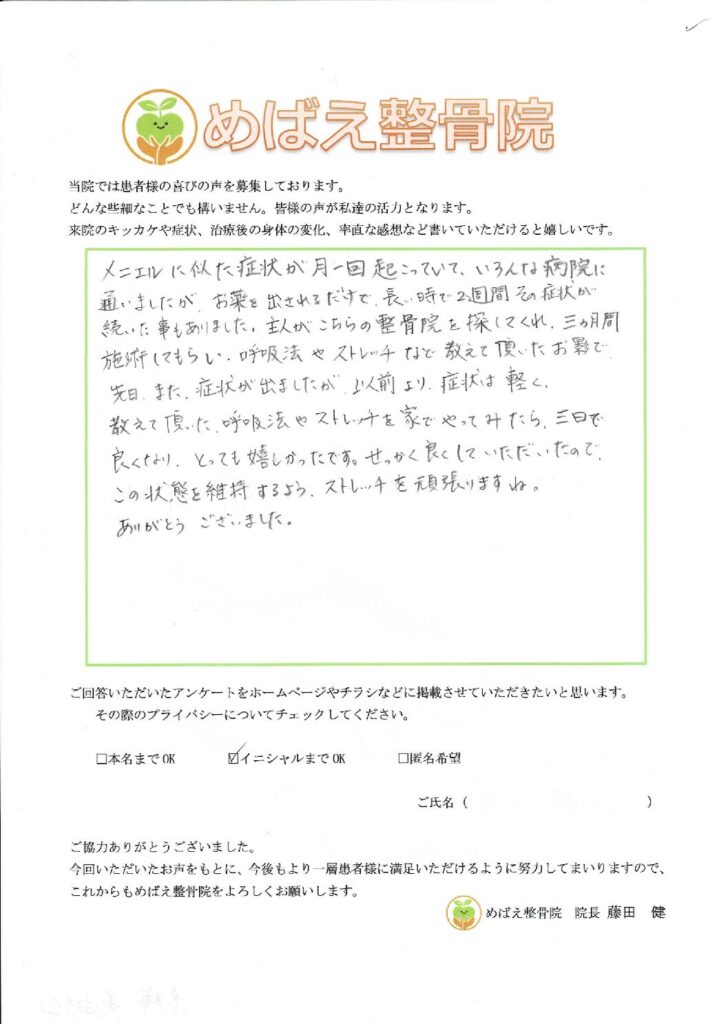 めばえ整骨院
当院では患者様の喜びの声を募集しております。
どんな些細なことでも構いません。皆様の声が私達の活力となります。
来院のキッカケや症状、治療後の身体の変化、率直な感想など書いていただけると嬉しいです。
メニエルに似た症状が月一回起こっていて、いろんな病院に
通いましたが、お薬を出されるだけで、長い時で2週間その症状が
続いた事もありました。主人がこちらの整骨院を探してくれ、三ヵ月間
施術してもらい、呼吸法やストレッチなど教えて頂いたお影で
先日、また、症状が出ましたが、以前より、症状は軽く、
教えて頂いた、呼吸法やストレッチを家でやってみたら、三日で
良くなり、とっても嬉しかったです。せっかく良くしていただいたので、
この状態を維持するよう、ストレッチを頑張りますね。
ありがとうございました。
ご回答いただいたアンケートをホームページやチラシなどに掲載させていただきたいと思います。
その際のプライバシーについてチェックしてください。
□本名までOK ☑イニシャルまでOK □匿名希望
ご氏名（ ）
ご協力ありがとうございました。
今回いただいたお声をもとに、今後もより一層患者様に満足いただけるように努力してまいりますので、
これからもめばえ整骨院をよろしくお願いします。
めばえ整骨院 院長 藤田 健